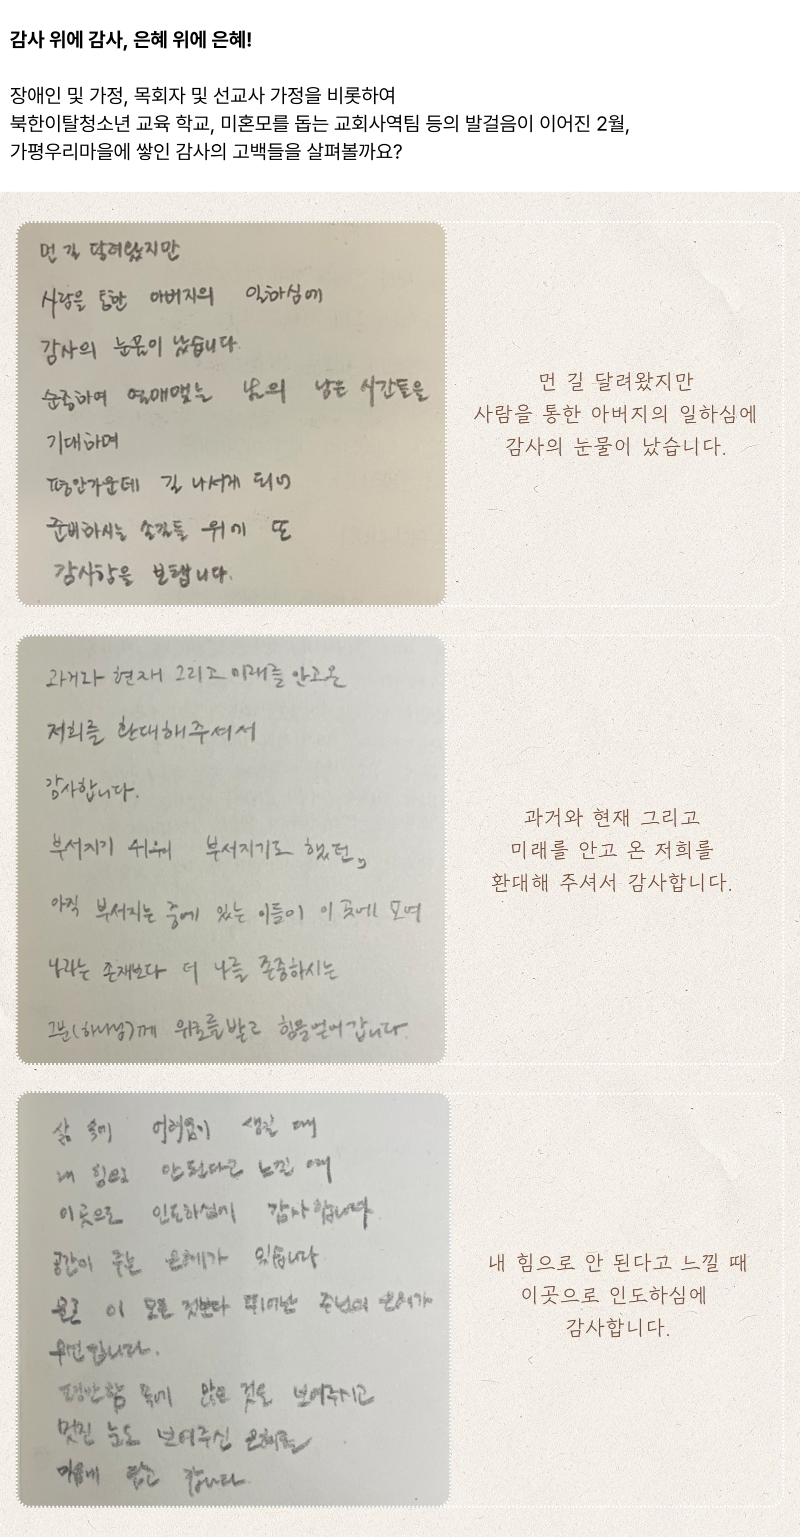 감사 위에 감사, 은혜 위에 은혜!
장애인 및 가정, 목회자 및 선교사 가정을 비롯하여
북한이탈청소년 교육 학교, 미혼모를 돕는 교회사역팀 등의 발걸음이 이어진 2월,
가평우리마을에 쌓인 감사의 고백들을 살펴볼까요?
먼 길 달려왔지만
사람을 통한 아버지의 일하심에
감사의 눈물이 났습니다.
순종하여 열매맺는 남은 시간들을
기대하며
평안가운데 길 나서게 되며
준비하시는 손길들 위에 또
감사함을 보탭니다.
먼 길 달려왔지만
사람을 통한 아버지의 일하심에
감사의 눈물이 났습니다.
과거와 현재 그리고 미래를 안고 온
저희를 환대해주셔서
감사합니다.
부서지기 쉬워 부서지기도 했던,
아직 부서지는 중에 있는 이들이 이 곳에 모여
나라는 존재보다 더 나를 존중하시는
그분(하나님)께 위로를 받고 힘을 얻어 갑니다.
과거와 현재 그리고
미래를 안고 온 저희를
환대해 주셔서 감사합니다.
삶 속에 어려움이 생길 때
내 힘으로 안 된다고 느낄 때
이곳으로 인도하심에 감사합니다
공간이 주는 은혜가 있습니다
물론 이 모든 것보다 뛰어난 주님의 은혜가
우선입니다.
평안함 속에 많은 것을 보여주시고
멋진 눈도 보여주신 은혜를
마음에 담고 갑니다.
내 힘으로 안 된다고 느낄 때
이곳으로 인도하심에
감사합니다.